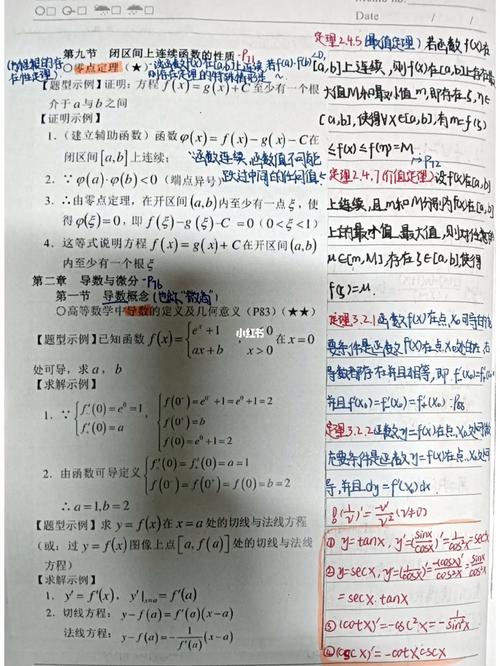 Date
第九节 闭区间上连续函数的性质 P71
○零点定理(★)
【题型示例】证明:方程 f(x)=g(x)+C 至少有一个根
介于 a 与 b 之间
【证明示例】
1.(建立辅助函数)函数 φ(x)=f(x)-g(x)-C 在
闭区间[a,b]上连续;
"函数连续,函数值不可能
跃过中间的任何值"
2.∵φ(a)·φ(b)<0(端点异号)
3.∴由零点定理,在开区间(a,b)内至少有一点ξ,使
得 φ(ξ)=0,即 f(ξ)-g(ξ)-C=0(0<ξ<1)
4.这等式说明方程 f(x)=g(x)+C 在开区间(a,b)
内至少有一个根ξ
第二章 导数与微分 P76
第一节 导数概念(也叫"微商")
○高等数学中导数的定义及几何意义(P83)(★★)
【题型示例】已知函数 f(x)={e^x+1 x≤0
ax+b x>0 在 x=0
处可导,求 a,b
【求解示例】
1.∵{f'₋(0)=e⁰=1
f'₊(0)=a
{f(0⁻)=e⁰+1=2
f(0)=e⁰+1=2
2.由函数可导定义{f'₋(0)=f'₊(0)=a=1
f(0⁻)=f(0⁺)=f(0)=b=2
∴a=1,b=2
【题型示例】求 y=f(x) 在 x=a 处的切线与法线方程
(或:过 y=f(x) 图像上点[a,f(a)]处的切线与法线
方程)
【求解示例】
1.y'=f'(x),y'|ₓ₌ₐ=f'(a)
2.切线方程:y-f(a)=f'(a)(x-a)
法线方程:y-f(a)=-1/f'(a)(x-a)
定理2.4.5(最值定理)若函数f(x)在
[a,b]上连续,则f(x)在[a,b]上存在最
大值M和最小值m,即存在ξ,η∈
[a,b],使得∀x∈[a,b],有m=f(ξ)
≤f(x)≤f(η)=M
P72
定理2.4.7(介值定理)设f(x)在[a,b]
上连续,且m和M分别为f(x)在[a,b]
上的最小值、最大值,则对任意的
μ∈[m,M],存在ξ∈[a,b],使得
f(ξ)=μ.
定理3.2.1 函数f(x)在点x₀可导的充
要条件是函数f(x)在点x₀处左、右
导数都存在并且相等,即f'₋(x₀)=f'₊(x₀)
并且f'(x₀)=f'₋(x₀)=f'₊(x₀) P88
定理3.2.2 函数y=f(x)在点x₀处可微
充要条件是函数y=f(x)在点x₀处可
导,并且dy=f'(x₀)dx.
(v≠0)
① y=tanx, y'=(sinx/cosx)'=1/cos²x=sec²x
② y=secx, y'=(1/cosx)'=-(cosx)'/cos²x=sinx/cos²x
=secx·tanx
③ (cotx)'=-csc²x=-1/sin²x
④ (cscx)'=-cotx·cscx
小红书